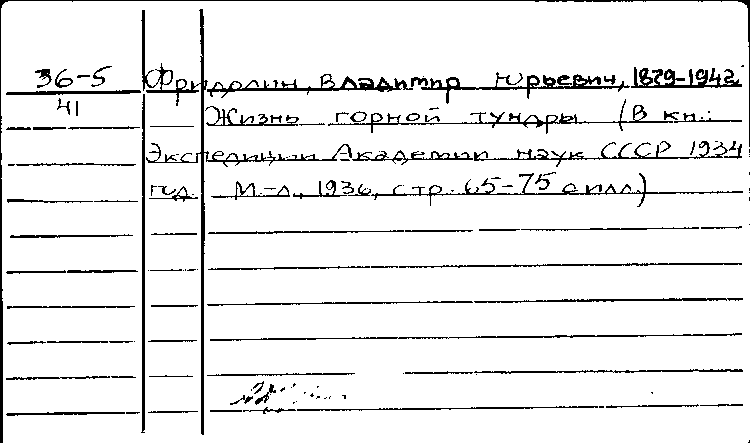 36-5 Фридолин, Владимир Юрьевич, 1879-1942.
41 Жизнь горной тундры (В кн.:
Экспедиции Академии наук СССР 1934
год. М.-Л., 1936, стр. 65-75 с илл.)